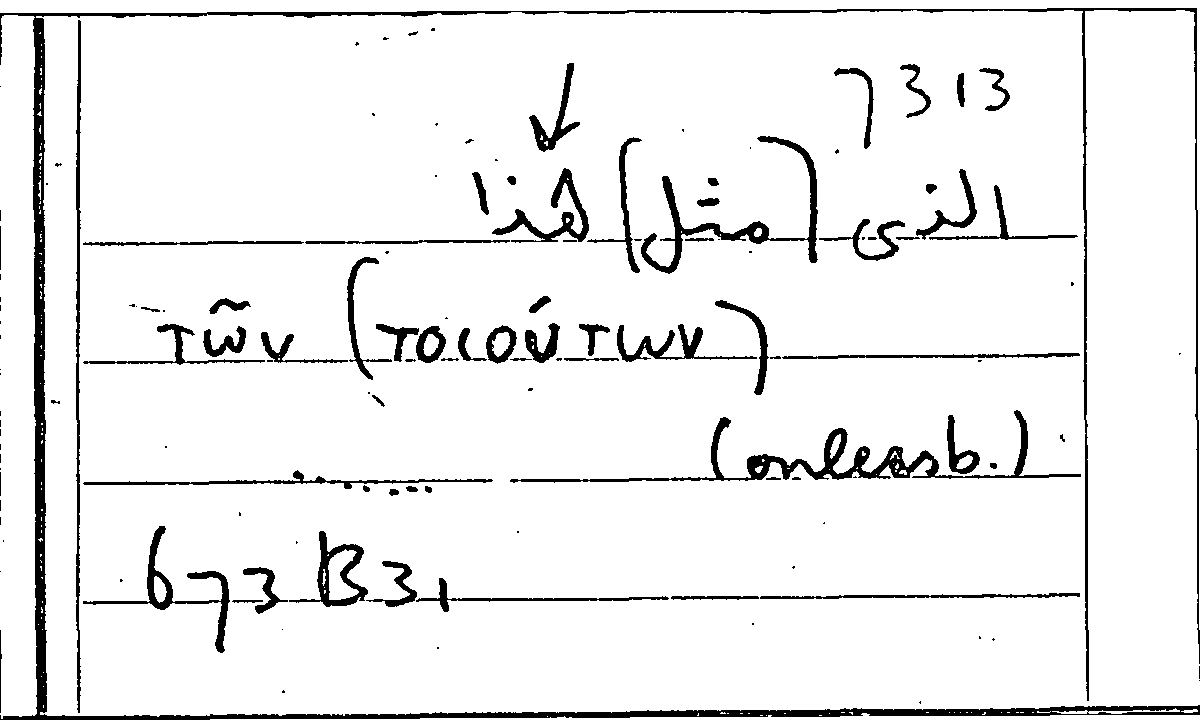 7313
الذى (مثل) هذا
τῶν (τοιούτων)
(onleesb.)
673 B 31